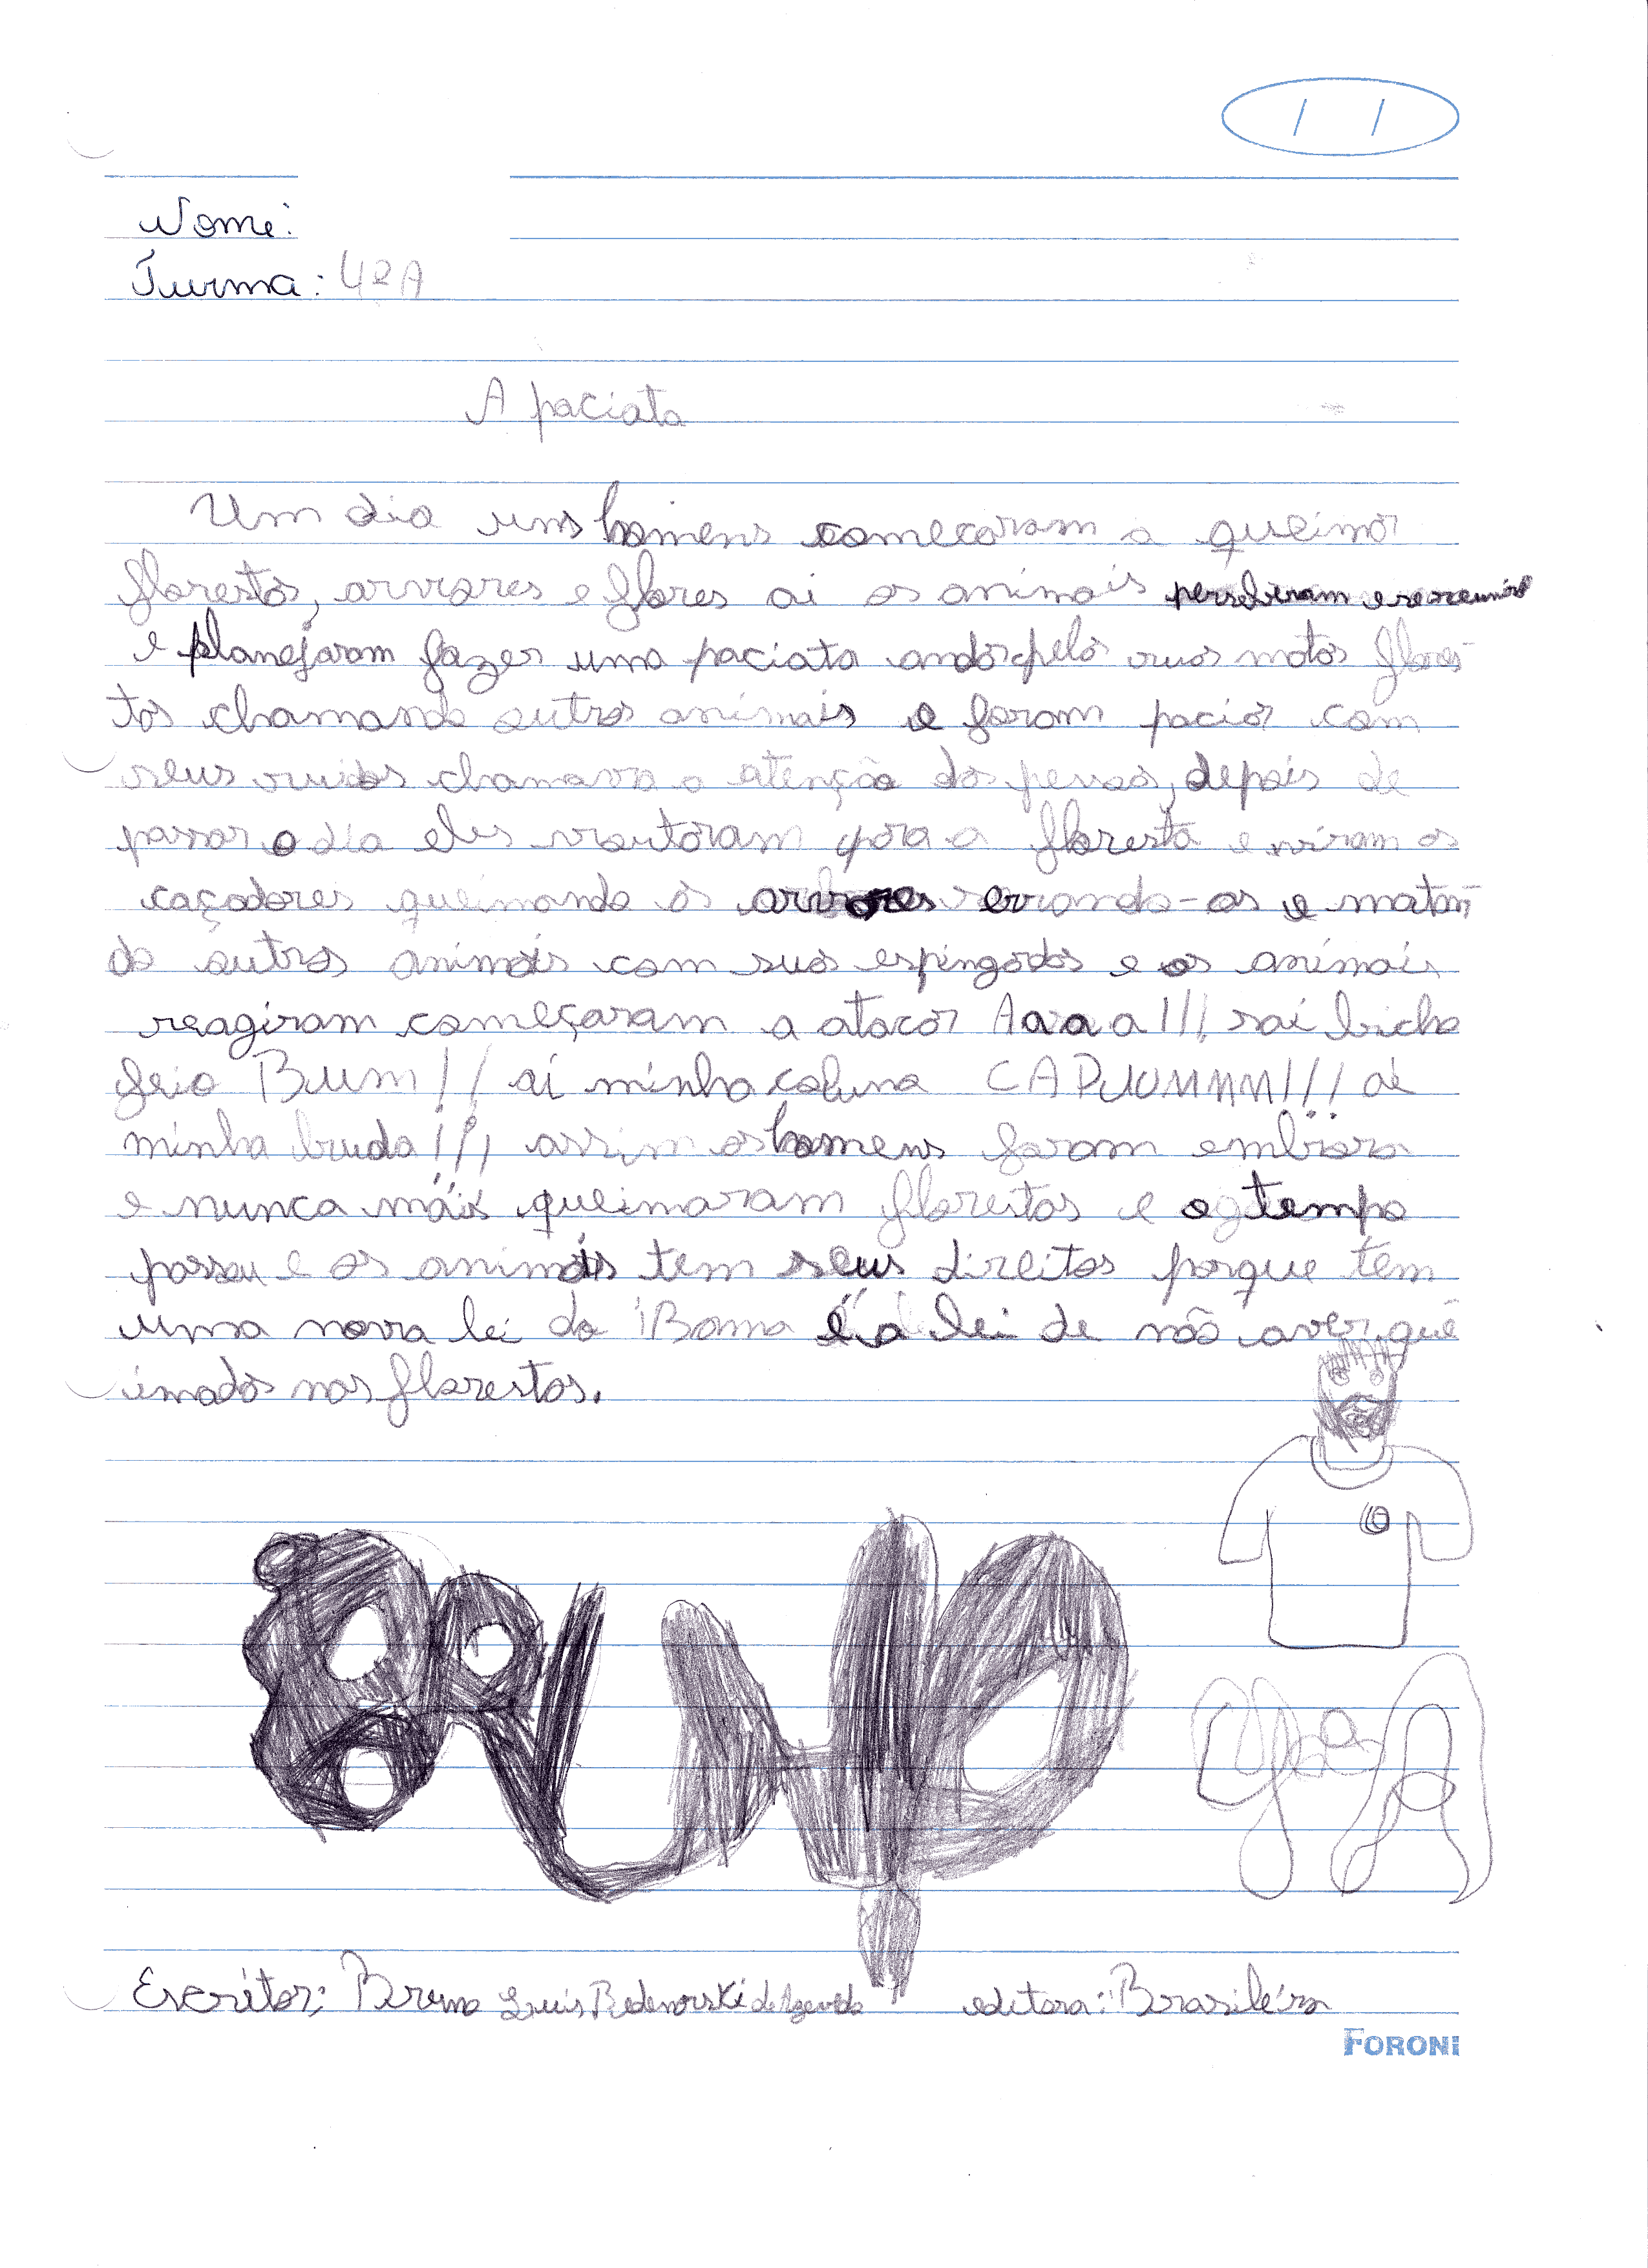 Nome:
Turma: 4ªA
A paciata
Um dia uns homens comecaram a queimar
florestas, arvores e flores ai os animais perseberam e se
e planejaram fazer uma paciata andar pelas ruas matas flores-
tas chamando outros animais e foram paciar com
seus ruidos chamava a atenção das pesoas, depois de
passar o dia eles voutaram para a floresta e viram os
caçadores queimando as arvores serrando-as e matan-
do outros animais com suas espingardas e os animais
reagiram começaram a atacar Aaaa!!! sai bicho
feio Bum!! ai minha coluna CAPUUMMM!!! ai
minha bunda!!! assim os homens foram embora
e nunca mais queimaram florestas e o tempo
passou e os animais tem seus direitos porque tem
uma nova lei do iBama é a lei de não aver que
imadas nas florestas.
Escritor: Bruno Luis de Azevedo editora: Brasileira
FORONI